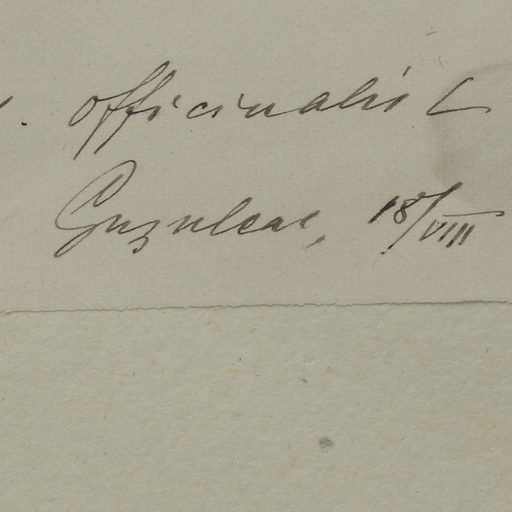 . officinalis L
Guzulcac, 18/VIII